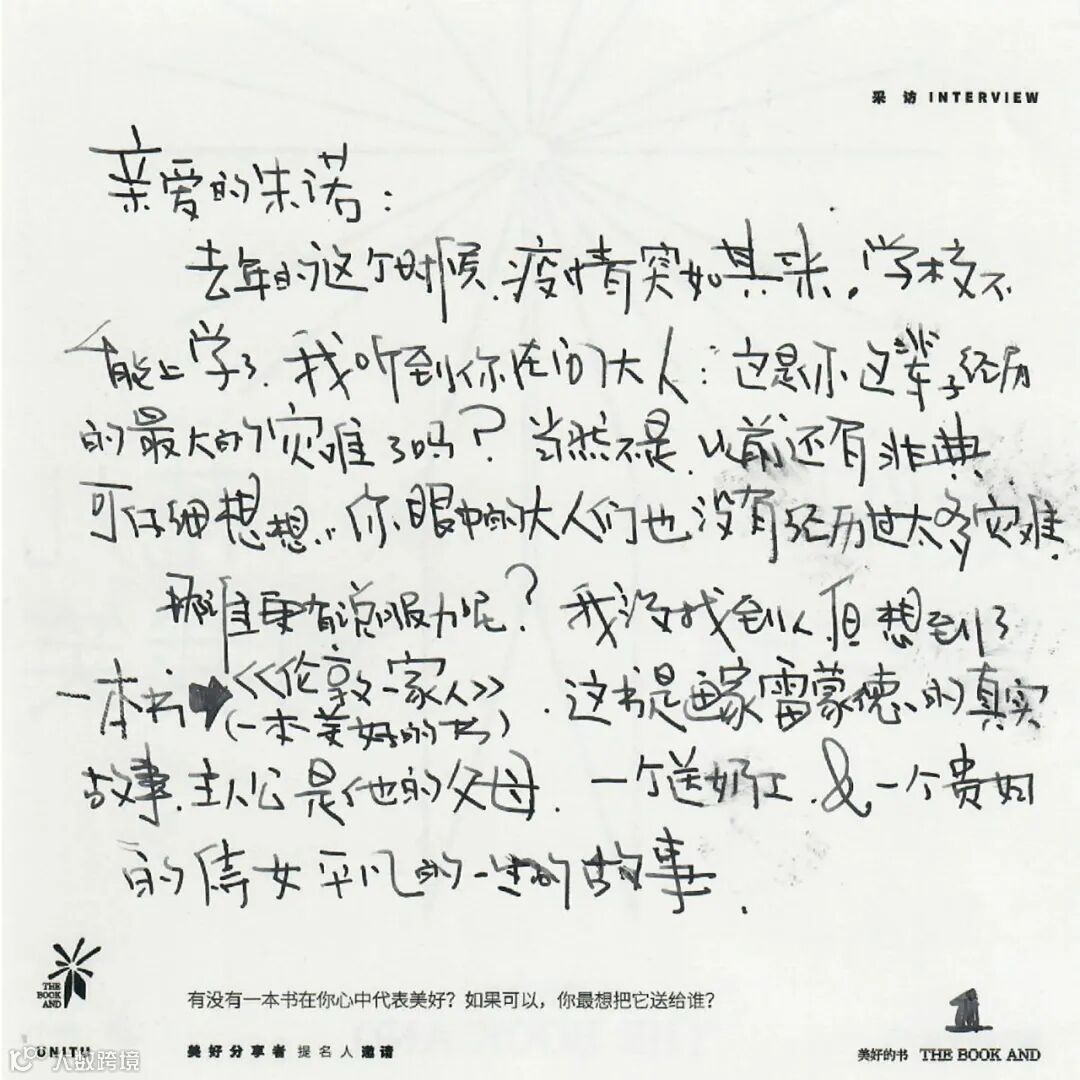 采 访 INTERVIEW
亲爱的朱诺：
去年的这个时候，疫情突如其来，学校不
能上学了，我听到你在问大人：这是你这辈子经历
的最大的灾难了吗？当然不是，以前还有非典
可仔细想想，你眼中的大人们也没有经历过太多灾难，
那谁更有说服力呢？我没找到人，但想到了
一本书➡《伦敦一家人》，这书是画家雷蒙德的真实
（一本美好的书）
故事，主人公是他的父母，一个送奶工，&一个贵妇
的侍女平凡的一生的故事.
THE
BOOK
AND
有没有一本书在你心中代表美好？如果可以，你最想把它送给谁？
UNITU
美好分享者 提名人 邀请
美好的书 THE BOOK AND
大数跨境